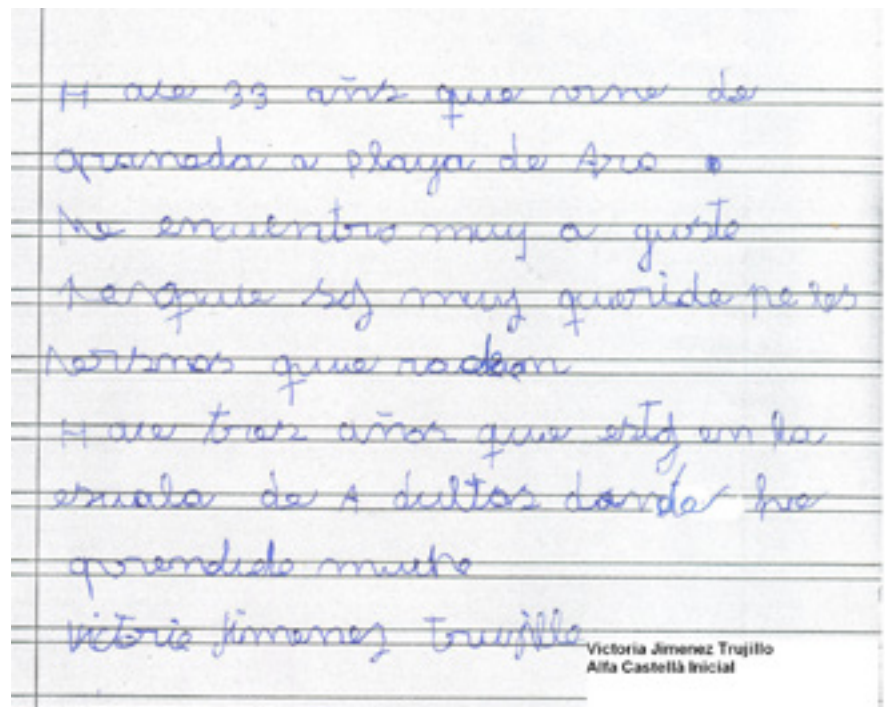 Hace 33 años que vine de
granada a playa de Aro.
Me encuentro muy a gusto
Porque soy muy querida
que rodean
Hace tres años que estoy en la
escuela de Adultos donde he
aprendido mucho
Victoria Jimenez Trujillo
Victoria Jimenez Trujillo
Alfa Castellà Inicial